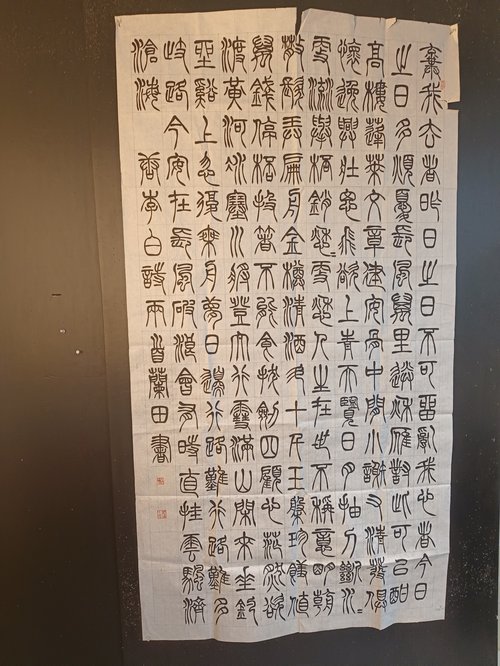 棄我去者昨日之日不可留亂我心者今日
之日多煩憂長風萬里送秋雁對此可以酣
高樓蓬萊文章建安骨中間小謝又清發俱
懷逸興壯思飛欲上青天覽日月抽刀斷水=
更流舉杯銷愁=更愁人生在世不稱意明朝
散髮弄扁舟金樽清酒斗十千玉盤珍饈值
萬錢停杯投箸不能食拔劍四顧心茫然欲
渡黃河冰塞川將登太行雪滿山閑來坐釣
碧谿上忽復乘舟夢日邊行路難行路難多
岐路今安在長風破浪會有時直挂雲帆濟
滄海 李白詩兩首蘭田書